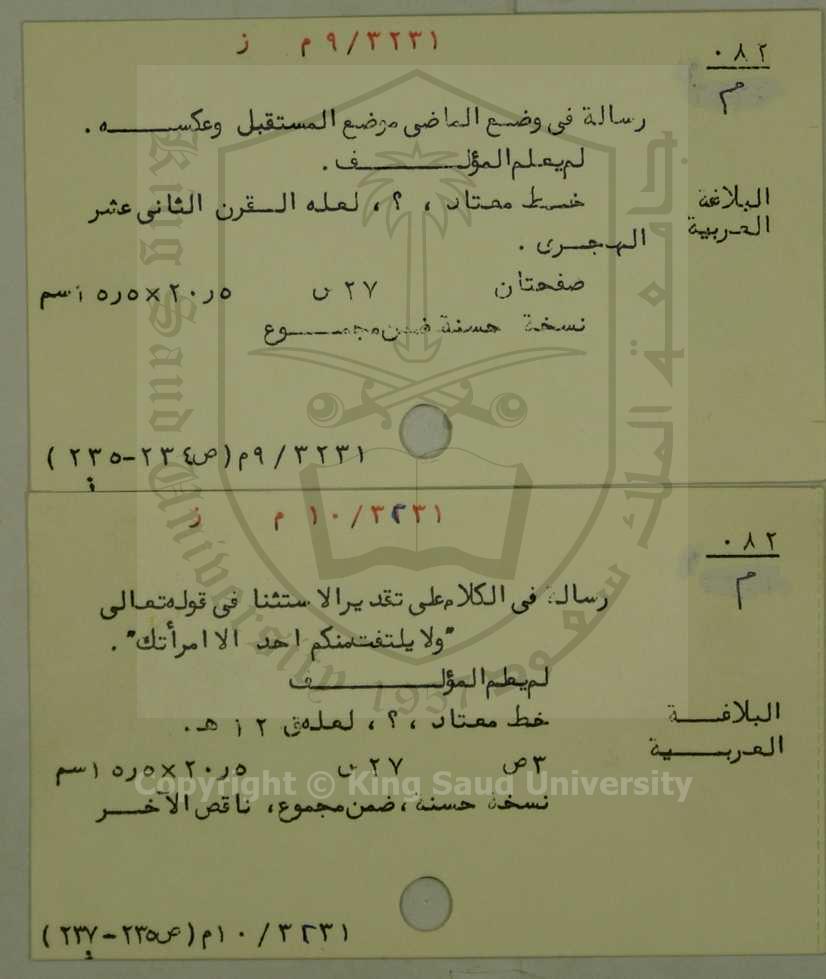 ٩/٣٢٣١ م ز
٠٨٢
م
رسالة فى وضع الماضى موضع المستقبل وعكسه .
لم يعلم المؤلف .
البلاغة
العربية
خط معتاد ، ؟ ، لعله القرن الثانى عشر
الهجرى .
صفحتان ٢٧ س ٥ر٢٠×٥ر١٥سم
نسخة حسنة ضمن مجموع
٩/٣٢٣١م (ص٢٣٤-٢٣٥)
١٠/٣٢٣١ م ز
٠٨٢
م
رسالة فى الكلام على تقدير الاستثنا فى قوله تعالى
"ولا يلتفت منكم احد الا امرأتك" .
لم يعلم المؤلف
البلاغة
العربية
خط معتاد ، ؟ ، لعله ق ١٢ هـ .
٣ص ٢٧ س ٥ر٢٠×٥ر١٥سم
نسخة حسنة ، ضمن مجموع ، ناقص الآخر
١٠/٣٢٣١م (ص٢٣٥-٢٣٧)
جامعة الملك سعود
King Saud University
1957
Copyright © King Saud University